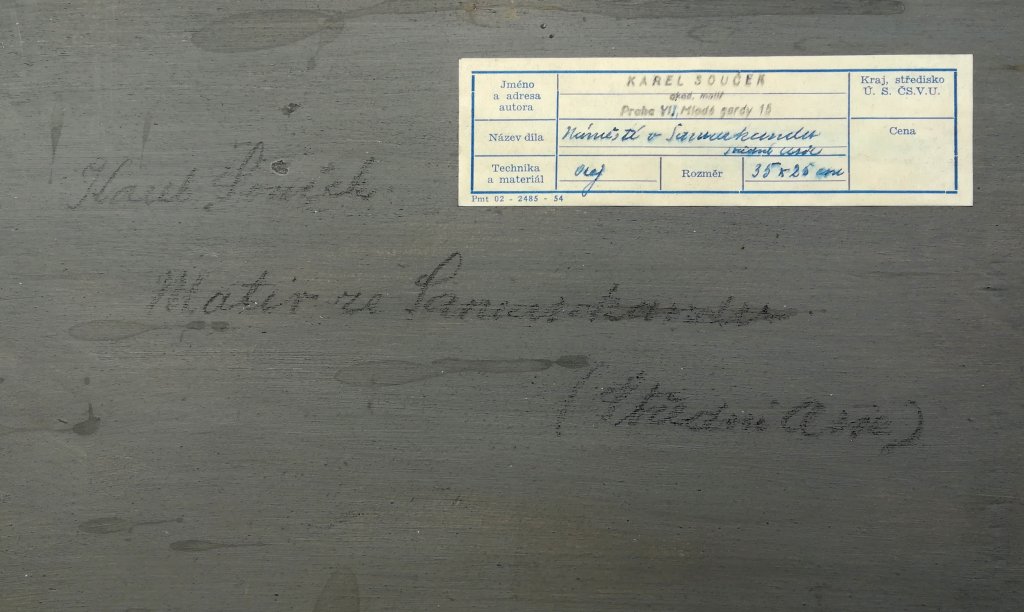 Jméno
a adresa
autora
KAREL SOUČEK
akad. malíř
Praha VII, Mladé gardy 15
Kraj, středisko
Ú. S. ČS.V.U.
Název díla
Náměstí v Samarkandu
střední Asie
Cena
Technika
a materiál
Olej
Rozměr
35 x 26 cm
Pmt 02 - 2485 - 54
Karel Souček.
Motiv ze Samarkandu
(Střední Asie)